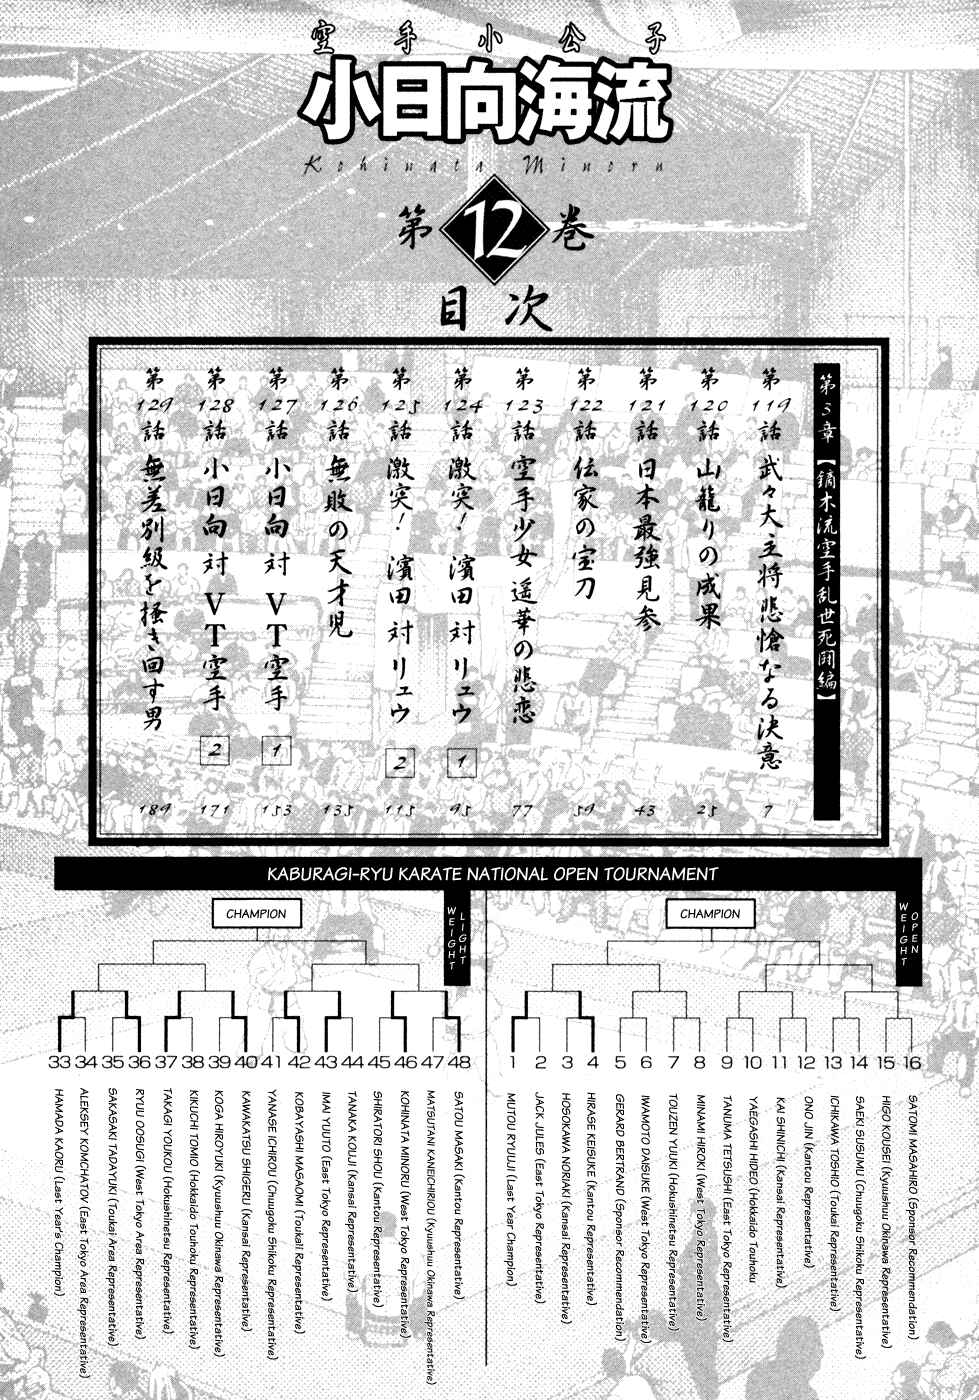 空手小公子
小日向海流
Kohinata Minoru
第12巻
目次
第3章【鏑木流空手乱世死闘編】
第119話 武々大主将悲愴なる決意 7
第120話 山籠りの成果 25
第121話 日本最強見参 43
第122話 伝家の宝刀 59
第123話 空手少女遥華の悲恋 77
第124話 激突! 濱田対リュウ 1 95
第125話 激突! 濱田対リュウ 2 115
第126話 無敗の天才児 135
第127話 小日向対VT空手 1 153
第128話 小日向対VT空手 2 171
第129話 無差別級を掻き回す男 189
KABURAGI-RYU KARATE NATIONAL OPEN TOURNAMENT
LIGHT WEIGHT
CHAMPION
33 HAMADA KAORU (Last Year's Champion)
34 ALEKSEY KOMCHATOV (East Tokyo Area Representative)
35 SAKASAKI TADAYUKI (Toukai Area Representative)
36 RYUU OOSUGI (West Tokyo Area Representative)
37 TAKAGI YOUKOU (Hokushinetsu Representative)
38 KIKUCHI TOMIO (Hokkaido Touhoku Representative)
39 KOGA HIROYUKI (Kyuushuu Okinawa Representative)
40 KAWAKATSU SHIGERU (Kansai Representative)
41 YANASE ICHIROU (Chuugoku Shikoku Representative)
42 KOBAYASHI MASAOMI (Toukaii Representative)
43 IMAI YUUTO (East Tokyo Representative)
44 TANAKA KOUJI (Kansai Representative)
45 SHIRATORI SHOU (Kantou Representative)
46 KOHINATA MINORU (West Tokyo Representative)
47 MATSUTANI KANEICHIROU (Kyuushuu Okinawa Representative)
48 SATOU MASAKI (Kantou Representative)
OPEN WEIGHT
CHAMPION
1 MUTOU RYUUJI (Last Year Champion)
2 JACK JULES (East Tokyo Representative)
3 HOSOKAWA NORIAKI (Kansai Representative)
4 HIRASE KEISUKE (Kantou Representative)
5 GERARD BERTRAND (Sponsor Recommendation)
6 IWAMOTO DAISUKE (West Tokyo Representative)
7 TOUZEN YUUKI (Hokushinetsu Representative)
8 MINAMI HIROKI (West Tokyo Representative)
9 TANUMA TETSUSHI (East Tokyo Representative)
10 YAEGASHI HIDEO (Hokkaido Touhoku
11 KAI SHINICHI (Kansai Representative)
12 ONO JIN (Kantou Representative)
13 ICHIKAWA TOSHIO (Toukai Representative)
14 SAEKI SUSUMU (Chuugoku Shikoku Representative)
15 HIGO KOUSEI (Kyuushuu Okinawa Representative)
16 SATOMI MASAHIRO (Sponsor Recommendation)